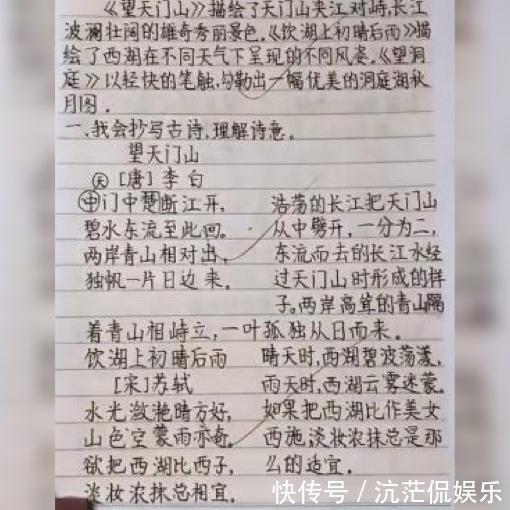 《望天门山》描绘了天门山夹江对峙,长江
波澜壮阔的雄奇秀丽景色.《饮湖上初晴后雨》描
绘了西湖在不同天气下呈现的不同风姿.《望洞
庭》以轻快的笔触,勾勒出一幅优美的洞庭湖秋
月图.
一、我会抄写古诗,理解诗意.
望天门山
天 [唐]李白
中门中楚断江开, 浩荡的长江把天门山
碧水东流至此回. 从中劈开,一分为二,
两岸青山相对出, 东流而去的长江水经
独帆一片日边来. 过天门山时形成的样
子.两岸高耸的青山隔
着青山相峙立,一叶孤独从日而来.
饮湖上初晴后雨 晴天时,西湖碧波荡漾,
[宋]苏轼 雨天时,西湖云雾迷蒙.
水光潋滟晴方好, 如果把西湖比作美女
山色空蒙雨亦奇. 西施,淡妆浓抹总是那
欲把西湖比西子, 么的适宜.
淡妆浓抹总相宜.
快传号/沆茫侃娱乐